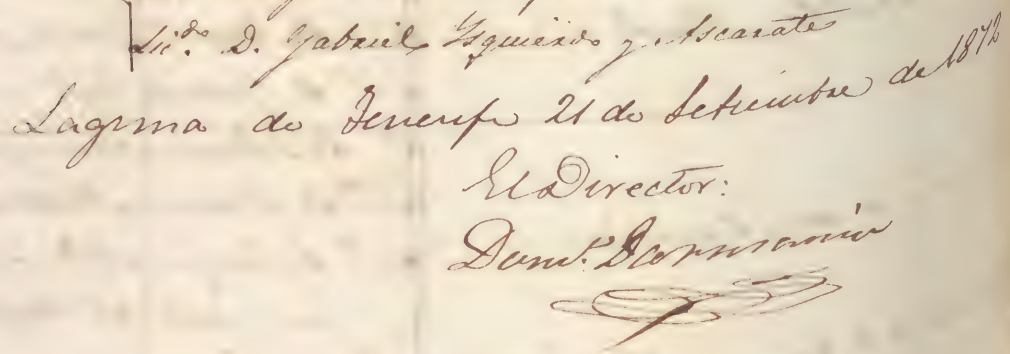 Lic.do D. Gabriel Izquierdo y Ascarate
Laguna de Tenerife 21 de Setiembre de 1872
El Director:
Dom.o